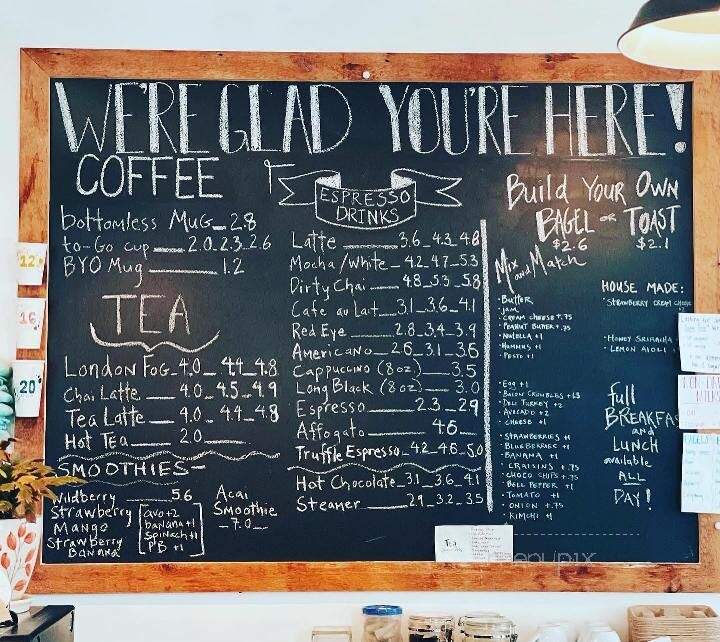 WE'RE GLAD YOU'RE HERE!
COFFEE
bottomless Mug_2.8
to-Go cup 2.0_2.3_2.6
BYO Mug 1.2
12
16
20
TEA
London Fog_4.0_4.4_4.8
Chai Latte_4.0_4.5_4.9
Tea Latte_4.0_4.4_4.8
Hot Tea 2.0
SMOOTHIES
Wildberry 5.6
Strawberry
Mango
Strawberry
Banana
avo+2
banana+1
Spinach+1
PB +1
Acai
Smoothie
_7.0_
ESPRESSO
DRINKS
Latte 3.6_4.3_4.8
Mocha/White_4.2_4.7_5.3
Dirty Chai 4.8_5.3_5.8
Cafe au Lait_3.1_3.6_4.1
Red Eye 2.8_3.4_3.9
Americano_2.6_3.1_3.6
Cappuccino (8oz) 3.5
Long Black (8oz) 3.0
Espresso 2.3_2.9
Affogato 4.6
Truffle Espresso_4.2_4.6_5.0
Hot Chocolate_3.1_3.6_4.1
Steamer 2.9_3.2_3.5
Build Your Own
BAGEL or TOAST
$2.6 $2.1
Mix and Match
Butter
Jam
Cream Cheese +.75
Peanut Butter +.75
Nutella +1
Hummus +1
Pesto +1
Egg +1
Bacon Crumbles +1.5
Deli Turkey +2
Avocado +2
Cheese +1
Strawberries +1
Blueberries +1
Banana +1
Craisins +.75
Choco Chips +.75
Bell Pepper +1
Tomato +1
Onion +.75
Kimchi +1
HOUSE MADE:
Strawberry Cream Cheese
Honey Sriracha
Lemon Aioli
full
BREAKFA
and
LUNCH
available
ALL
DAY!
TEA
menupix